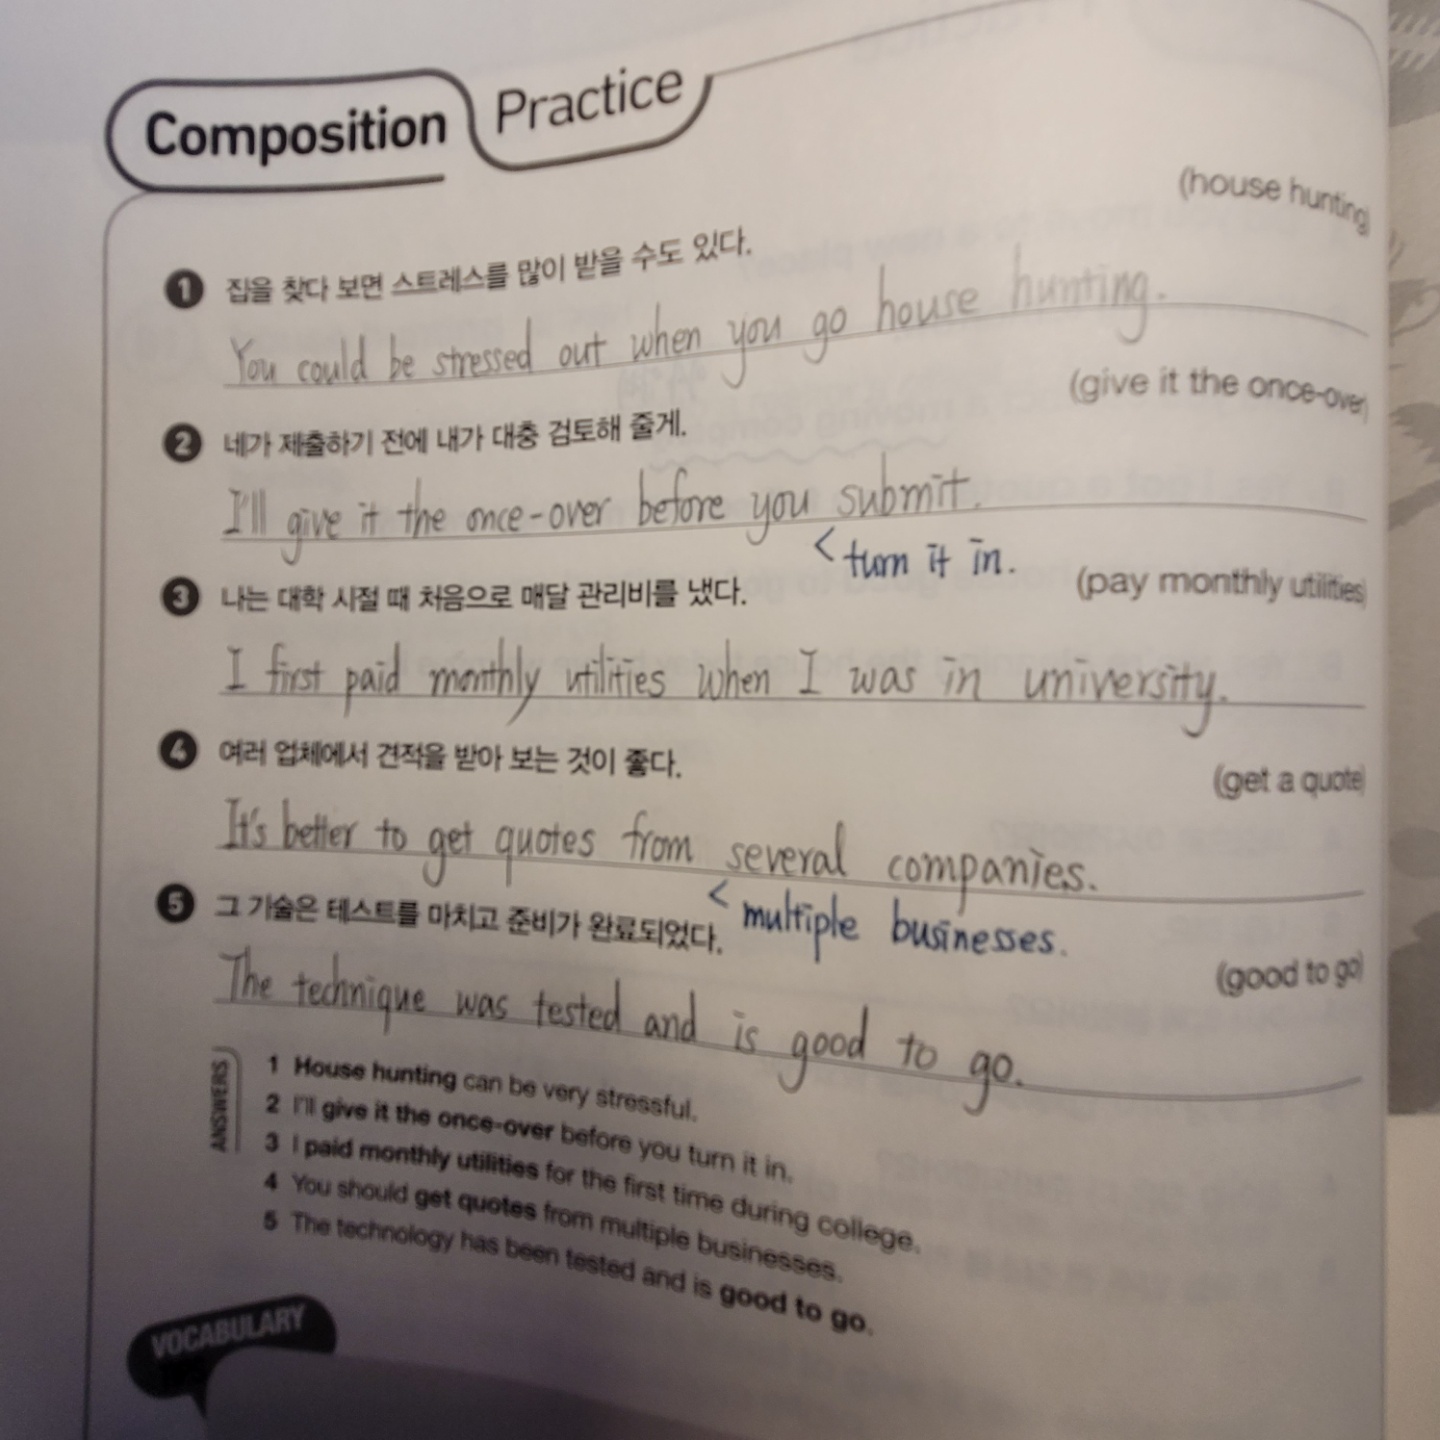 Composition Practice
(house hunting)
1 집을 찾다 보면 스트레스를 많이 받을 수도 있다.
You could be stressed out when you go house hunting.
(give it the once-over)
2 네가 제출하기 전에 내가 대충 검토해 줄게.
I'll give it the once-over before you submit.
< turn it in.
3 나는 대학 시절 때 처음으로 매달 관리비를 냈다.
(pay monthly utilities)
I first paid monthly utilities when I was in university.
4 여러 업체에서 견적을 받아 보는 것이 좋다.
(get a quote)
It's better to get quotes from several companies.
< multiple businesses.
5 그 기술은 테스트를 마치고 준비가 완료되었다.
(good to go)
The technique was tested and is good to go.
ANSWERS
1 House hunting can be very stressful.
2 I'll give it the once-over before you turn it in.
3 I paid monthly utilities for the first time during college.
4 You should get quotes from multiple businesses.
5 The technology has been tested and is good to go.
VOCABULARY